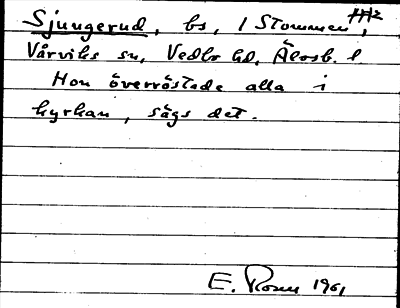 Sjungerud, bs, / Stommen,
Vårviks sn, Vedbo hd, Älvsb. l
Hon överröstade alla i
kyrkan, sägs det.
E. Rosen 1961